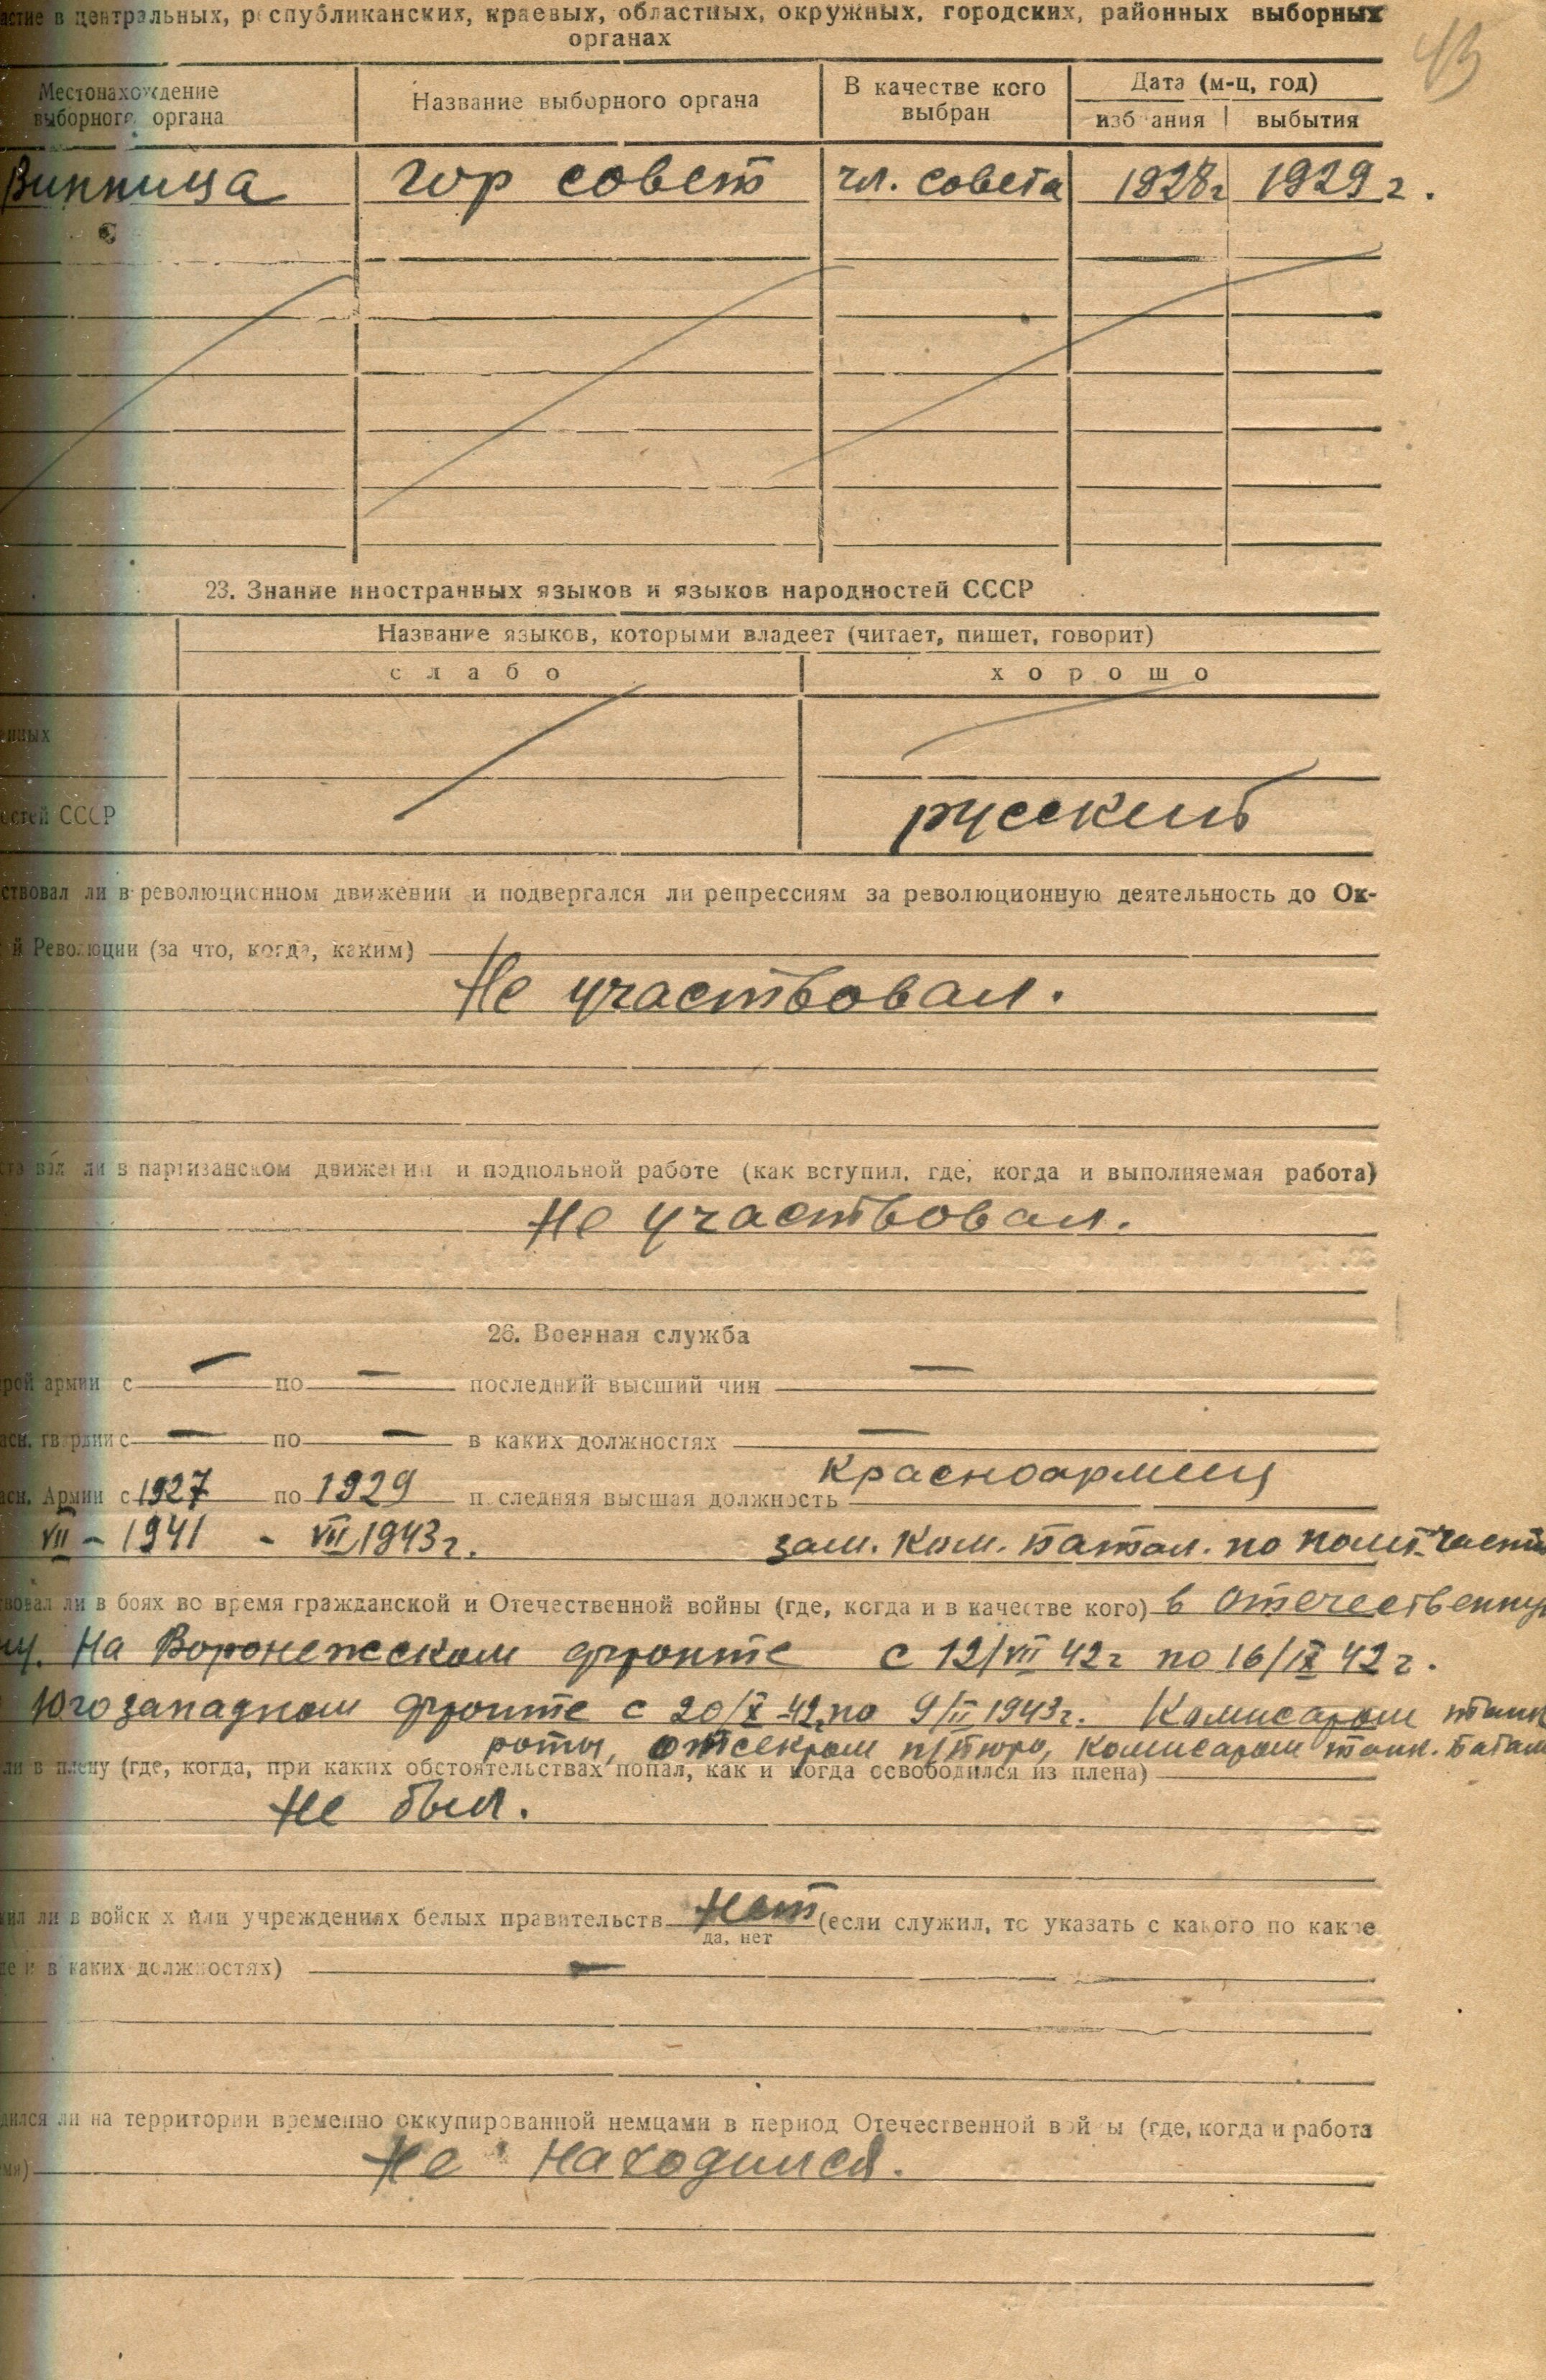 астие в центральных, республиканских, краевых, областных, окружных, городских, районных выборных
органах
43
Местонахождение выборного органа | Название выборного органа | В качестве кого выбран | Дата (м-ц, год)
избрания | выбытия
Винница | гор совет | чл. совета | 1928г | 1929 г.
23. Знание иностранных языков и языков народностей СССР
Название языков, которыми владеет (читает, пишет, говорит)
слабо | хорошо
енных
остей СССР | русский
ствовал ли в революционном движении и подвергался ли репрессиям за революционную деятельность до Ок-
й Революции (за что, когда, каким)
Не участвовал.
вал ли в партизанском движении и подпольной работе (как вступил, где, когда и выполняемая работа)
Не участвовал.
26. Военная служба
рой армии с — по — последний высший чин —
асн. гвардии с — по — в каких должностях —
асн. Армии с 1927 по 1929 последняя высшая должность Красноармеец
VII - 1941 - VII 1943 г. зам. ком. батал. по полит. части
твовал ли в боях во время гражданской и Отечественной войны (где, когда и в качестве кого) в Отечественную
На Воронежском фронте с 12/VII 42 г по 16/IX 42 г.
Югозападном фронте с 20/X-42г по 9/II 1943г. Комисаром танк
роты, отсекром п/бюро, комисаром танк. батал
ли в плену (где, когда, при каких обстоятельствах попал, как и когда освободился из плена)
Не был.
жил ли в войсках или учреждениях белых правительств Нет (если служил, то указать с какого по какое
да, нет
де и в каких должностях) —
дился ли на территории временно оккупированной немцами в период Отечественной войны (где, когда и работа
мя)
Не находился.